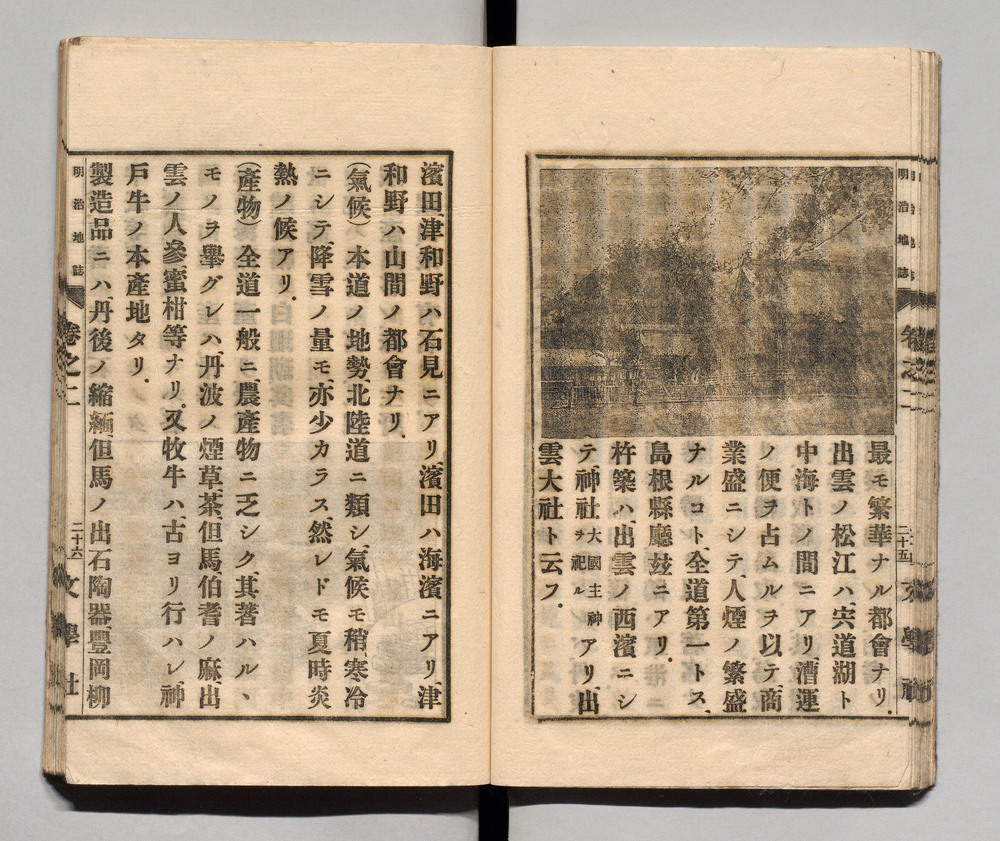 最モ繁華ナル都會ナリ.
出雲ノ松江ハ、宍道湖ト
中海トノ間ニアリ、漕運
ノ便ヲ占ムルヲ以テ、商
業盛ニシテ、人煙ノ繁盛
ナルコト、全道第一トス、
島根縣廳玆ニアリ.
杵築ハ、出雲ノ西濱ニシ
テ神社大國主神ヲ祀ルアリ、出
雲大社ト云フ.
明治地誌 卷之二 二十五 文學社
濱田、津和野ハ石見ニアリ、濱田ハ海濱ニアリ、津
和野ハ山間ノ都會ナリ.
(氣候) 本道ノ地勢、北陸道ニ類シ、氣候モ稍、寒冷
ニシテ、降雪ノ量モ、亦少カラス、然レドモ夏時炎
熱ノ候アリ.
(產物) 全道一般ニ、農產物ニ乏シク、其著ハルヽ
モノヲ擧グレハ、丹波ノ煙草、茶、但馬、伯耆ノ麻、出
雲ノ人參、蜜柑等ナリ.又牧牛ハ、古ヨリ行ハレ、神
戶牛ノ本產地タリ.
製造品ニハ、丹後ノ縮緬、但馬ノ出石陶器、豐岡柳
明治地誌 卷之二 二十六 文學社